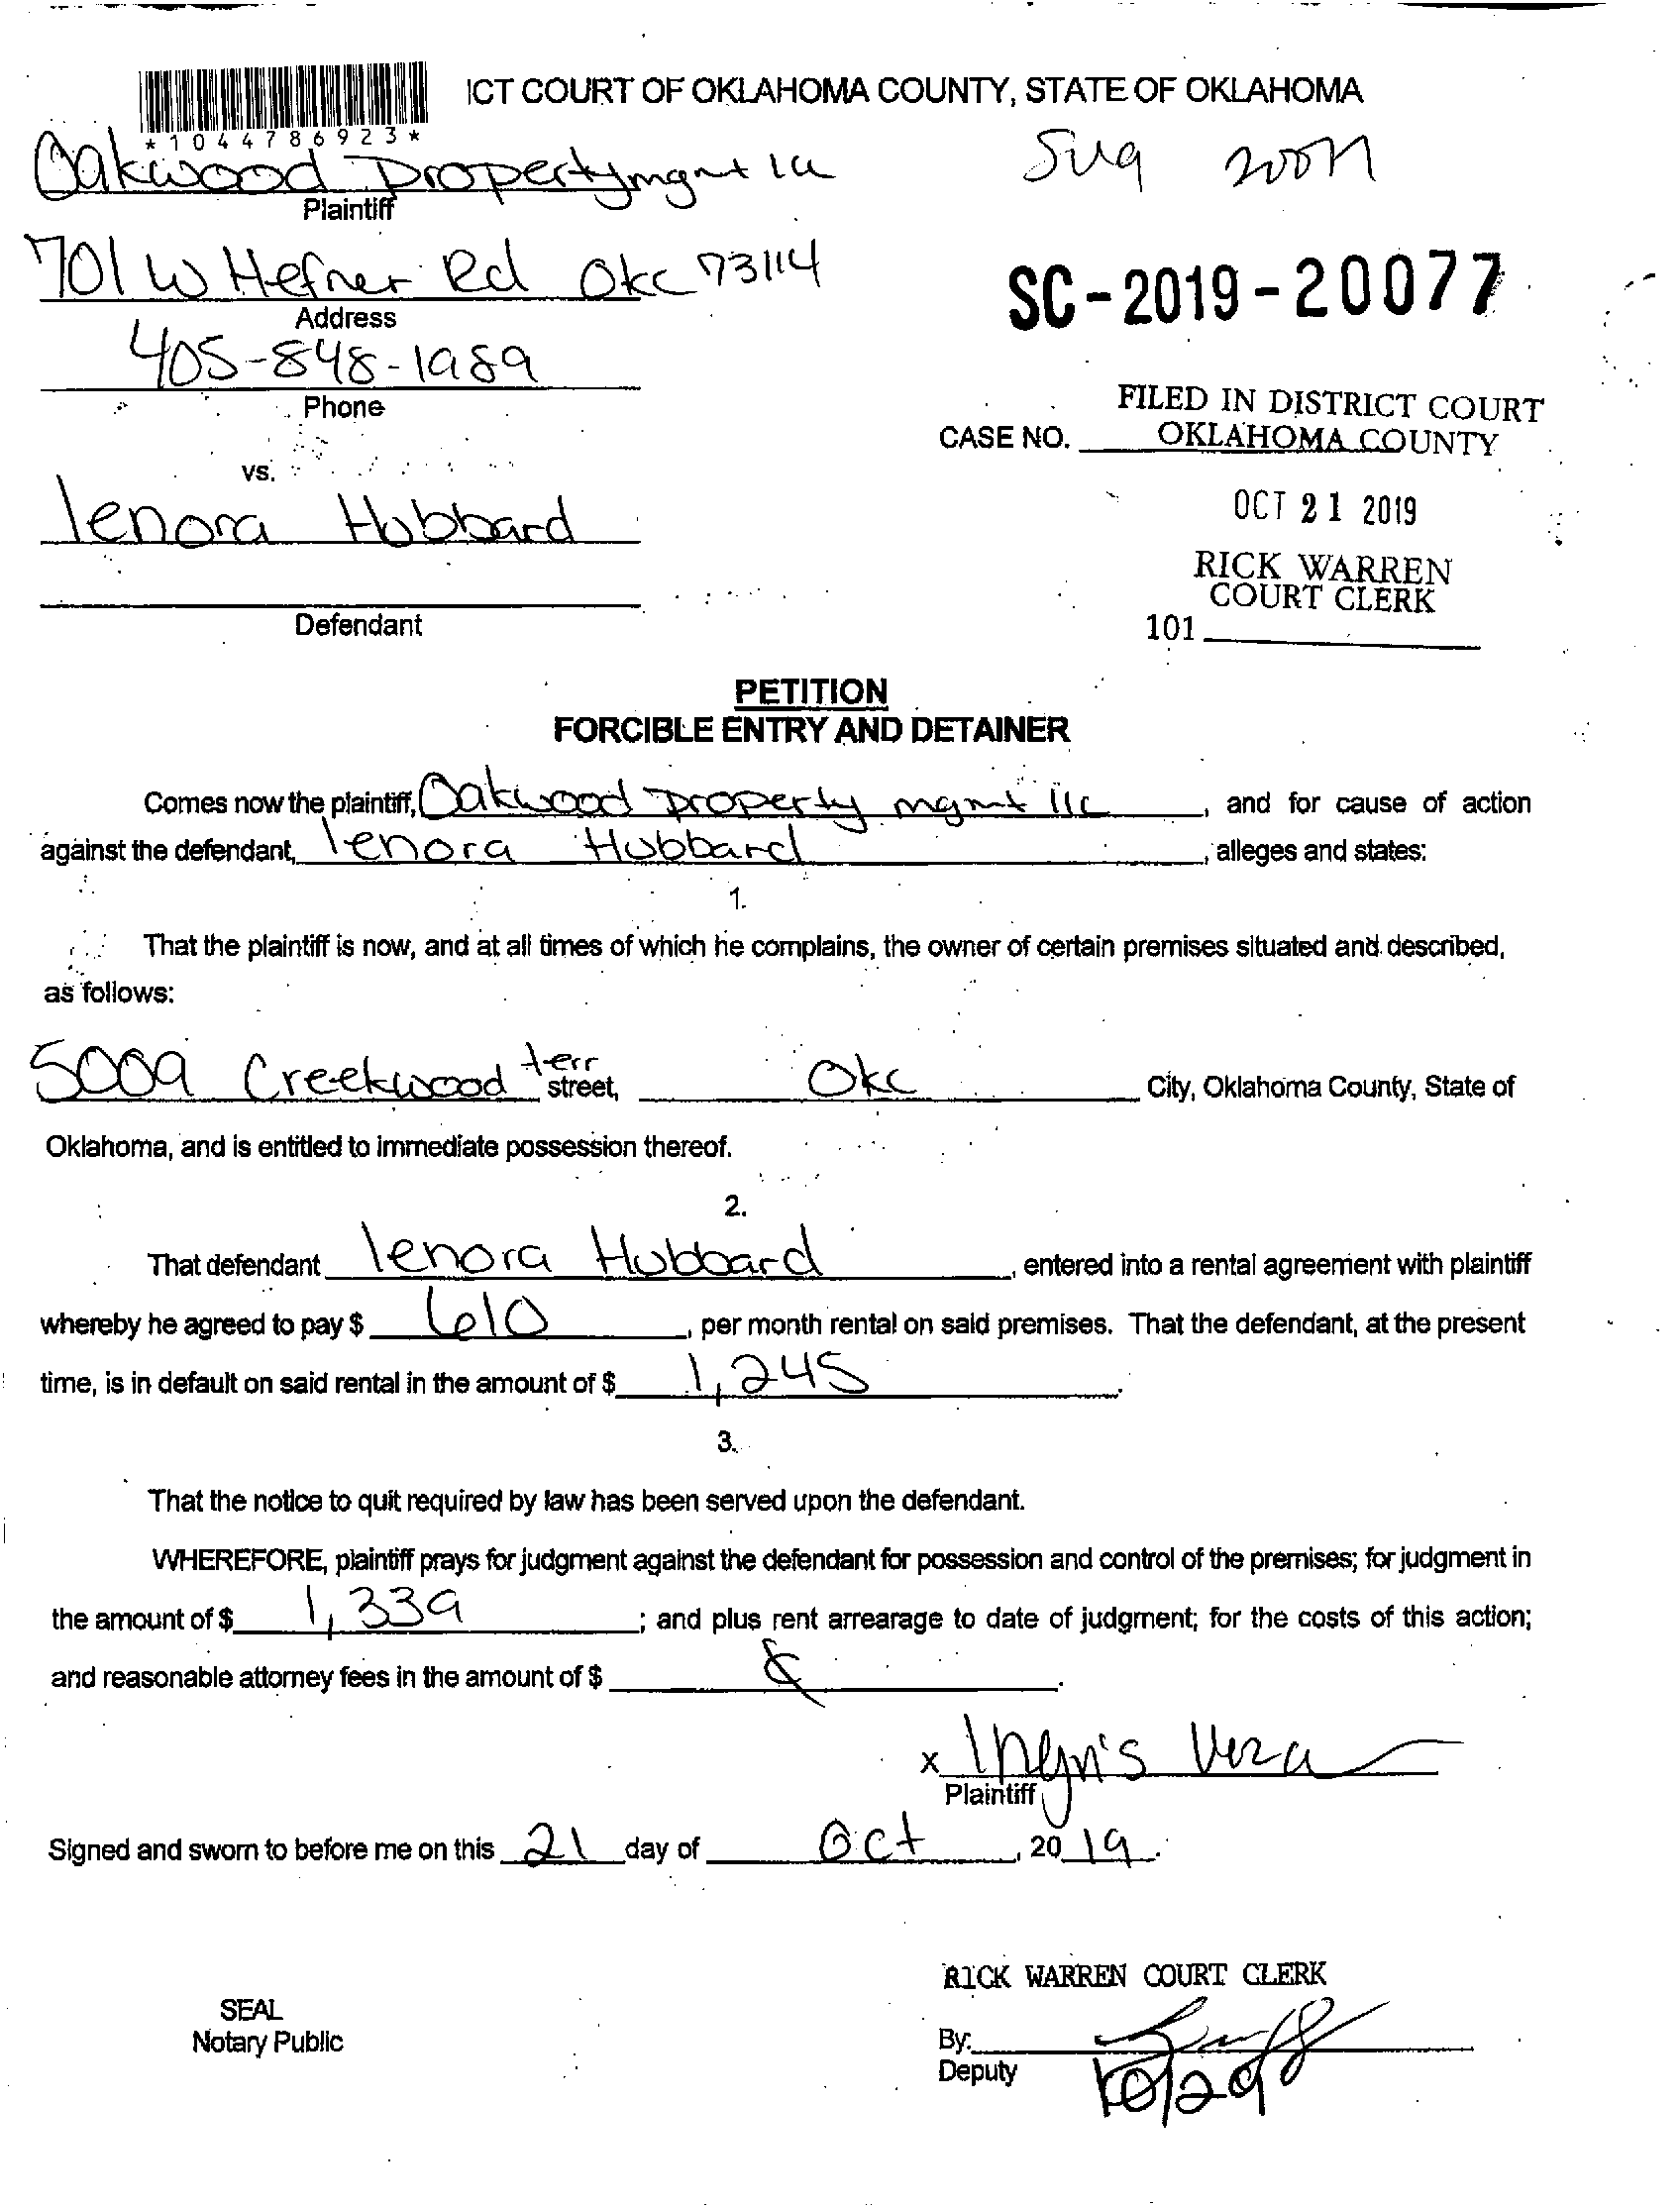 ICT COURT OF OKLAHOMA COUNTY, STATE OF OKLAHOMA
*1044786923*
Oakwood Propertymgmt llc
Plaintiff
701 W Hefner Rd Okc 73114
Address
405-848-1989
Phone
SC-2019-20077
FILED IN DISTRICT COURT
CASE NO. OKLAHOMA COUNTY
vs.
lenora Hubbard
OCT 21 2019
RICK WARREN
COURT CLERK
Defendant
101
PETITION
FORCIBLE ENTRY AND DETAINER
Comes now the plaintiff, Oakwood property mgmt llc, and for cause of action
against the defendant, lenora Hubbard, alleges and states:
1.
That the plaintiff is now, and at all times of which he complains, the owner of certain premises situated and described,
as follows:
5009 Creekwood terr street, Okc City, Oklahoma County, State of
Oklahoma, and is entitled to immediate possession thereof.
2.
That defendant lenora Hubbard, entered into a rental agreement with plaintiff
whereby he agreed to pay $ 610, per month rental on said premises. That the defendant, at the present
time, is in default on said rental in the amount of $ 1,245.
3.
That the notice to quit required by law has been served upon the defendant.
WHEREFORE, plaintiff prays for judgment against the defendant for possession and control of the premises; for judgment in
the amount of $ 1,339; and plus rent arrearage to date of judgment; for the costs of this action;
and reasonable attorney fees in the amount of $
x
Plaintiff
Signed and sworn to before me on this 21 day of Oct, 2019.
RICK WARREN COURT CLERK
SEAL
Notary Public
By:
Deputy